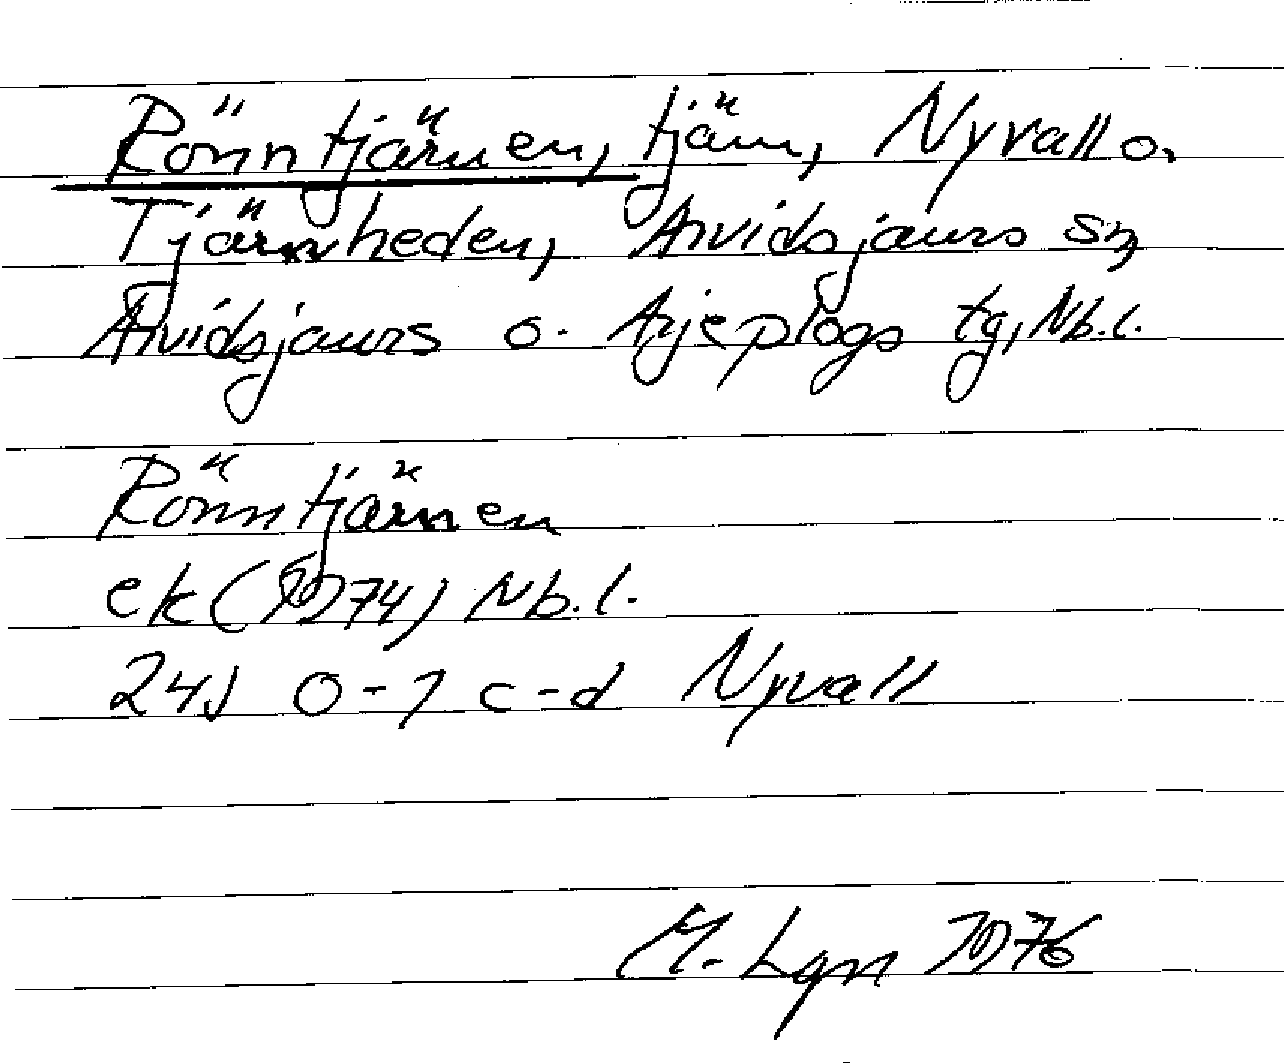 Rönntjärnen, tjärn, Nyvall o.
Tjärnheden, Arvidsjaurs sn,
Arvidsjaurs o. Arjeplogs tg, Nb.l.
Rönntjärnen
ek (1974) Nb.l.
24J 0-1 c-d Nyvall
M. Lgn 1976